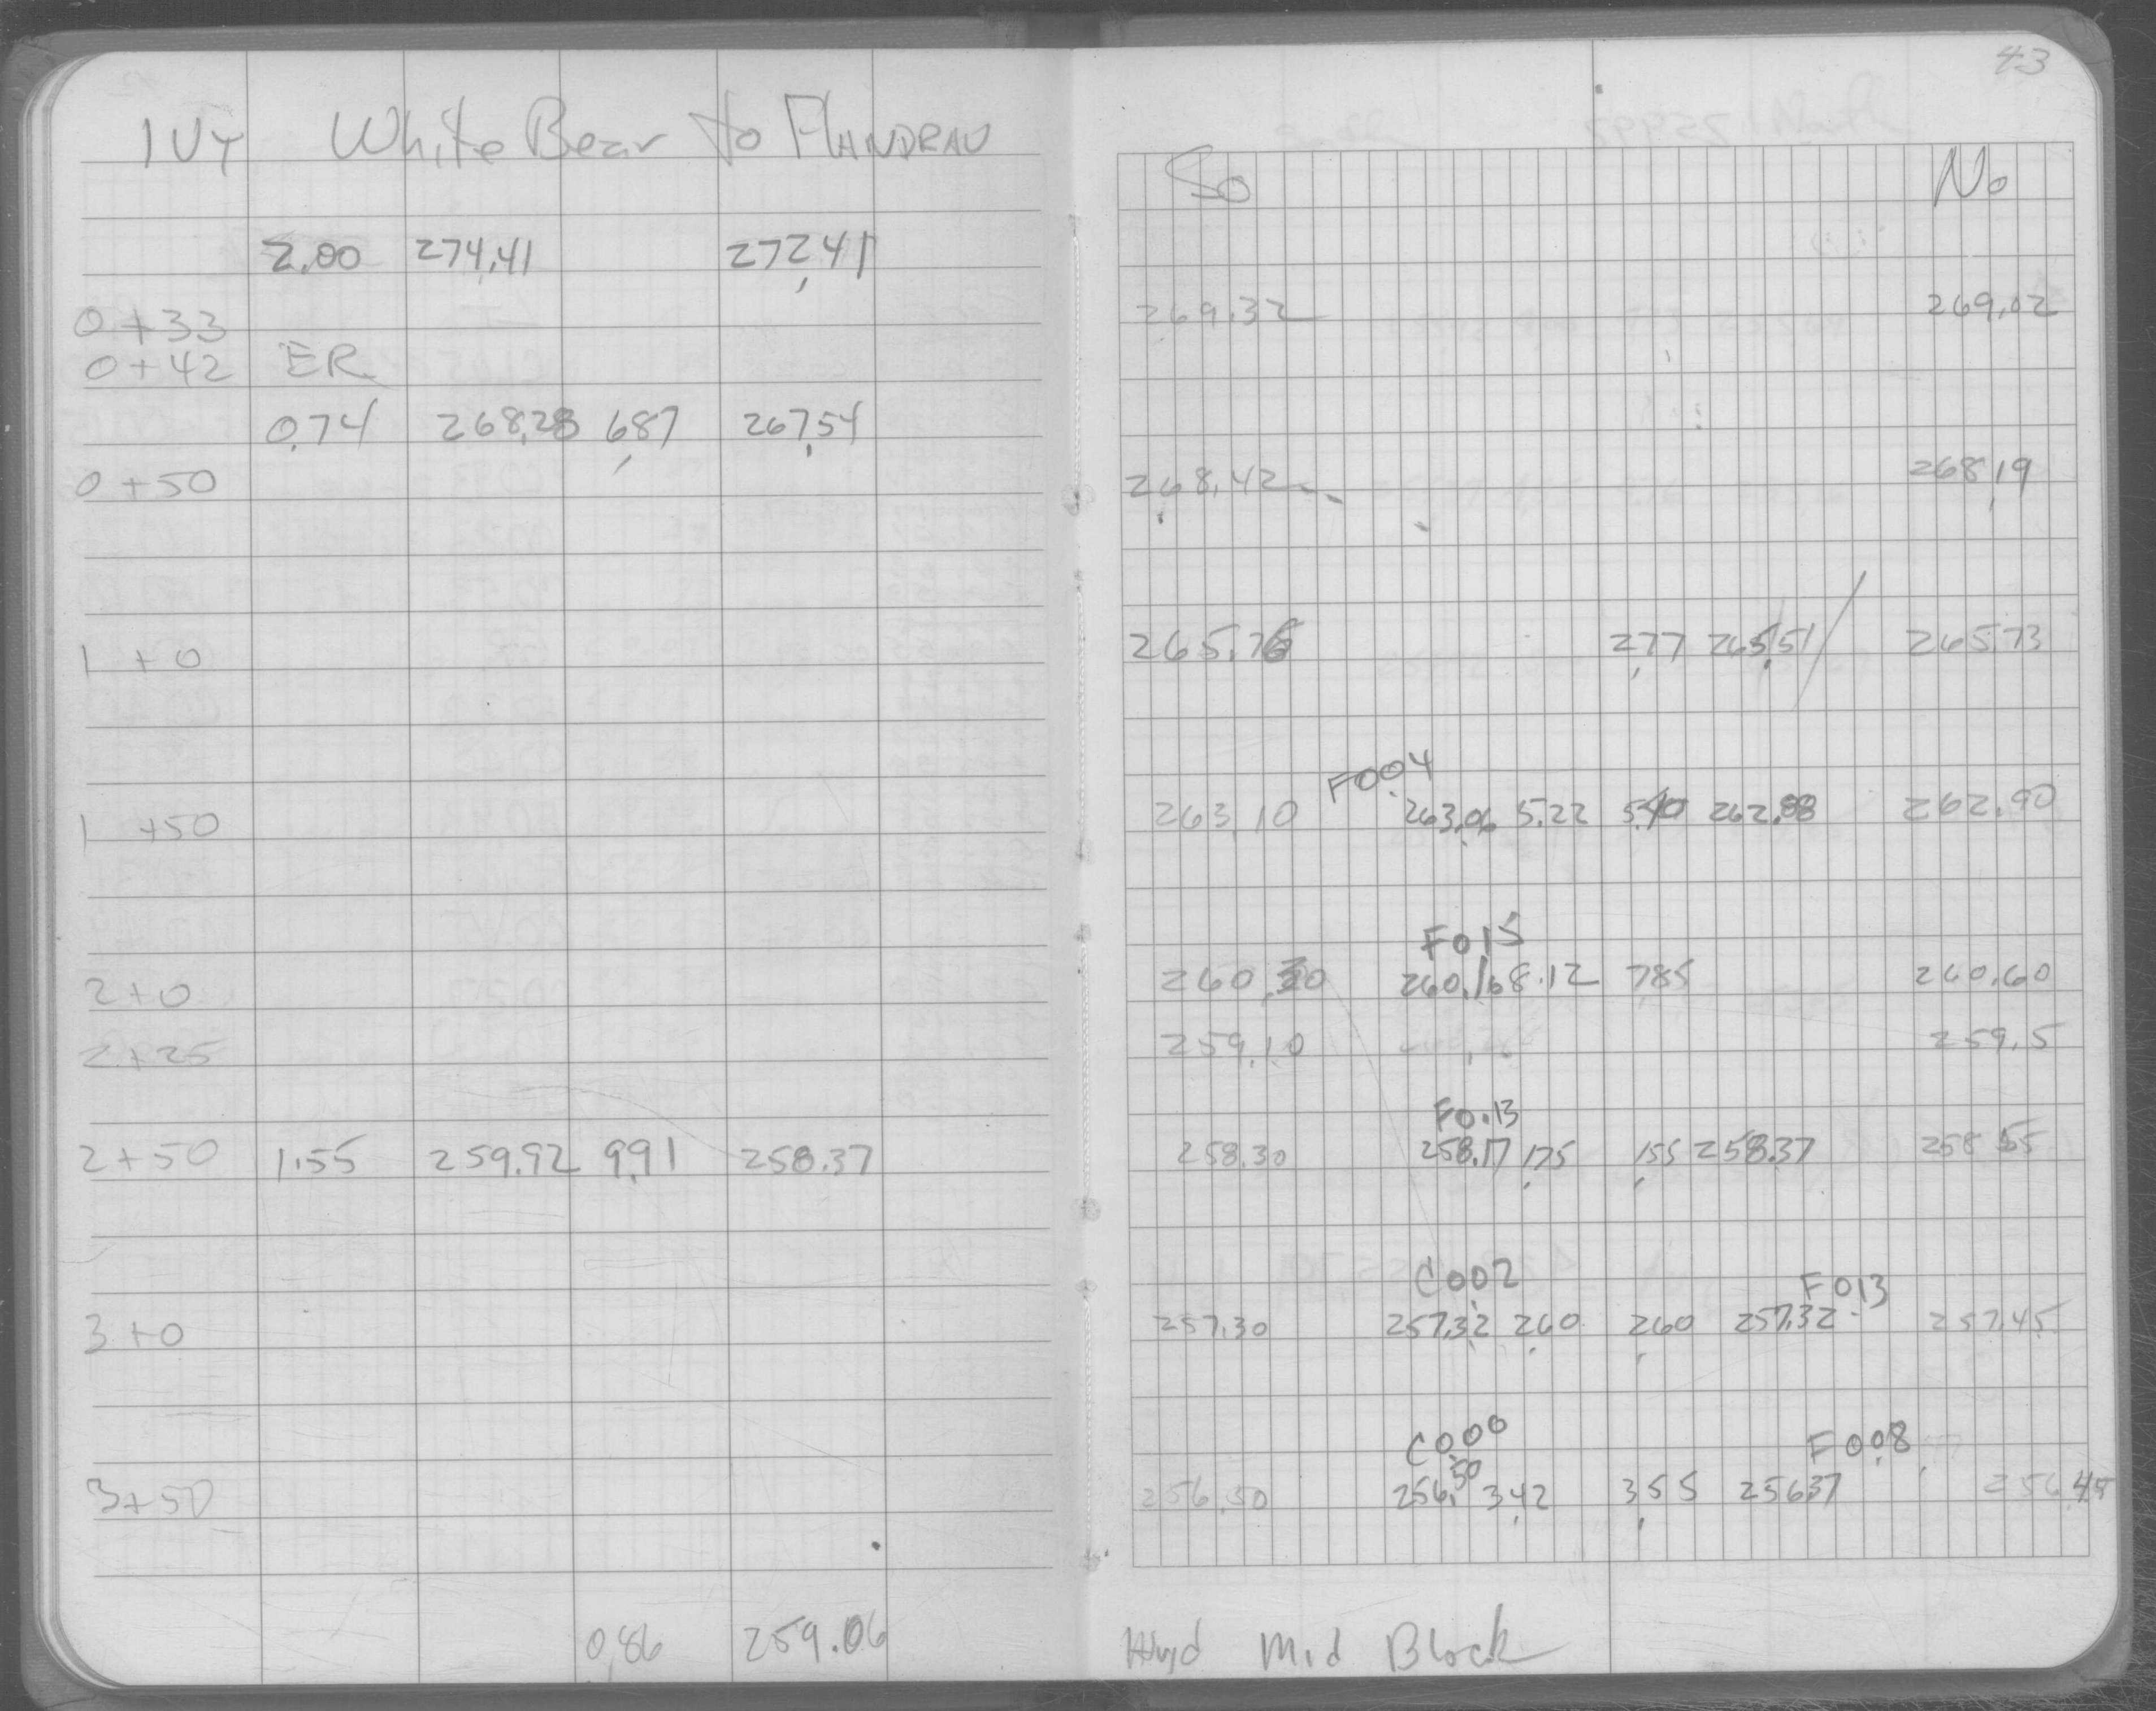 43
IVY White Bear to FLANDRAU
So No
2.00 274.41 272.41
0+33 269.32 269.02
0+42 ER
0.74 268.28 6.87 267.54
0+50 268.42 268.19
1+0 265.76 2.77 265.51 265.73
F 0.04
1+50 263.10 263.06 5.22 5.40 262.88 262.90
F 0.15
2+0 260.30 260.16 8.12 7.85 260.60
2+25 259.10 259.5
F 0.13
2+50 1.55 259.92 9.91 258.37 258.30 258.17 1.75 1.55 258.37 258.55
C 0.02 F 0.13
3+0 257.30 257.32 2.60 2.60 257.32 257.45
C 0.00 F 0.08
3+50 256.50 256.50 3.42 3.55 256.37 256.45
0.86 259.06 Hyd Mid Block